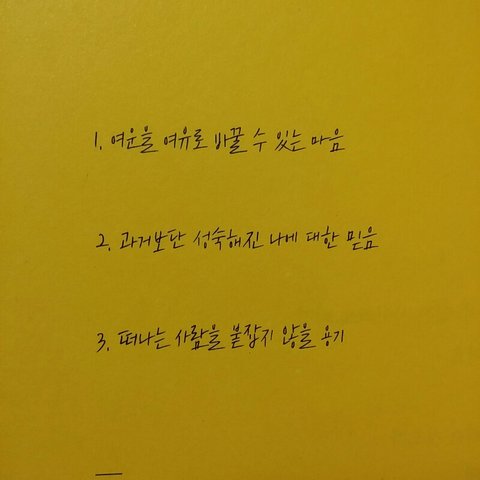 1. 여운을 여유로 바꿀 수 있는 마음
2. 과거보단 성숙해진 나에 대한 믿음
3. 떠나는 사람을 붙잡지 않을 용기